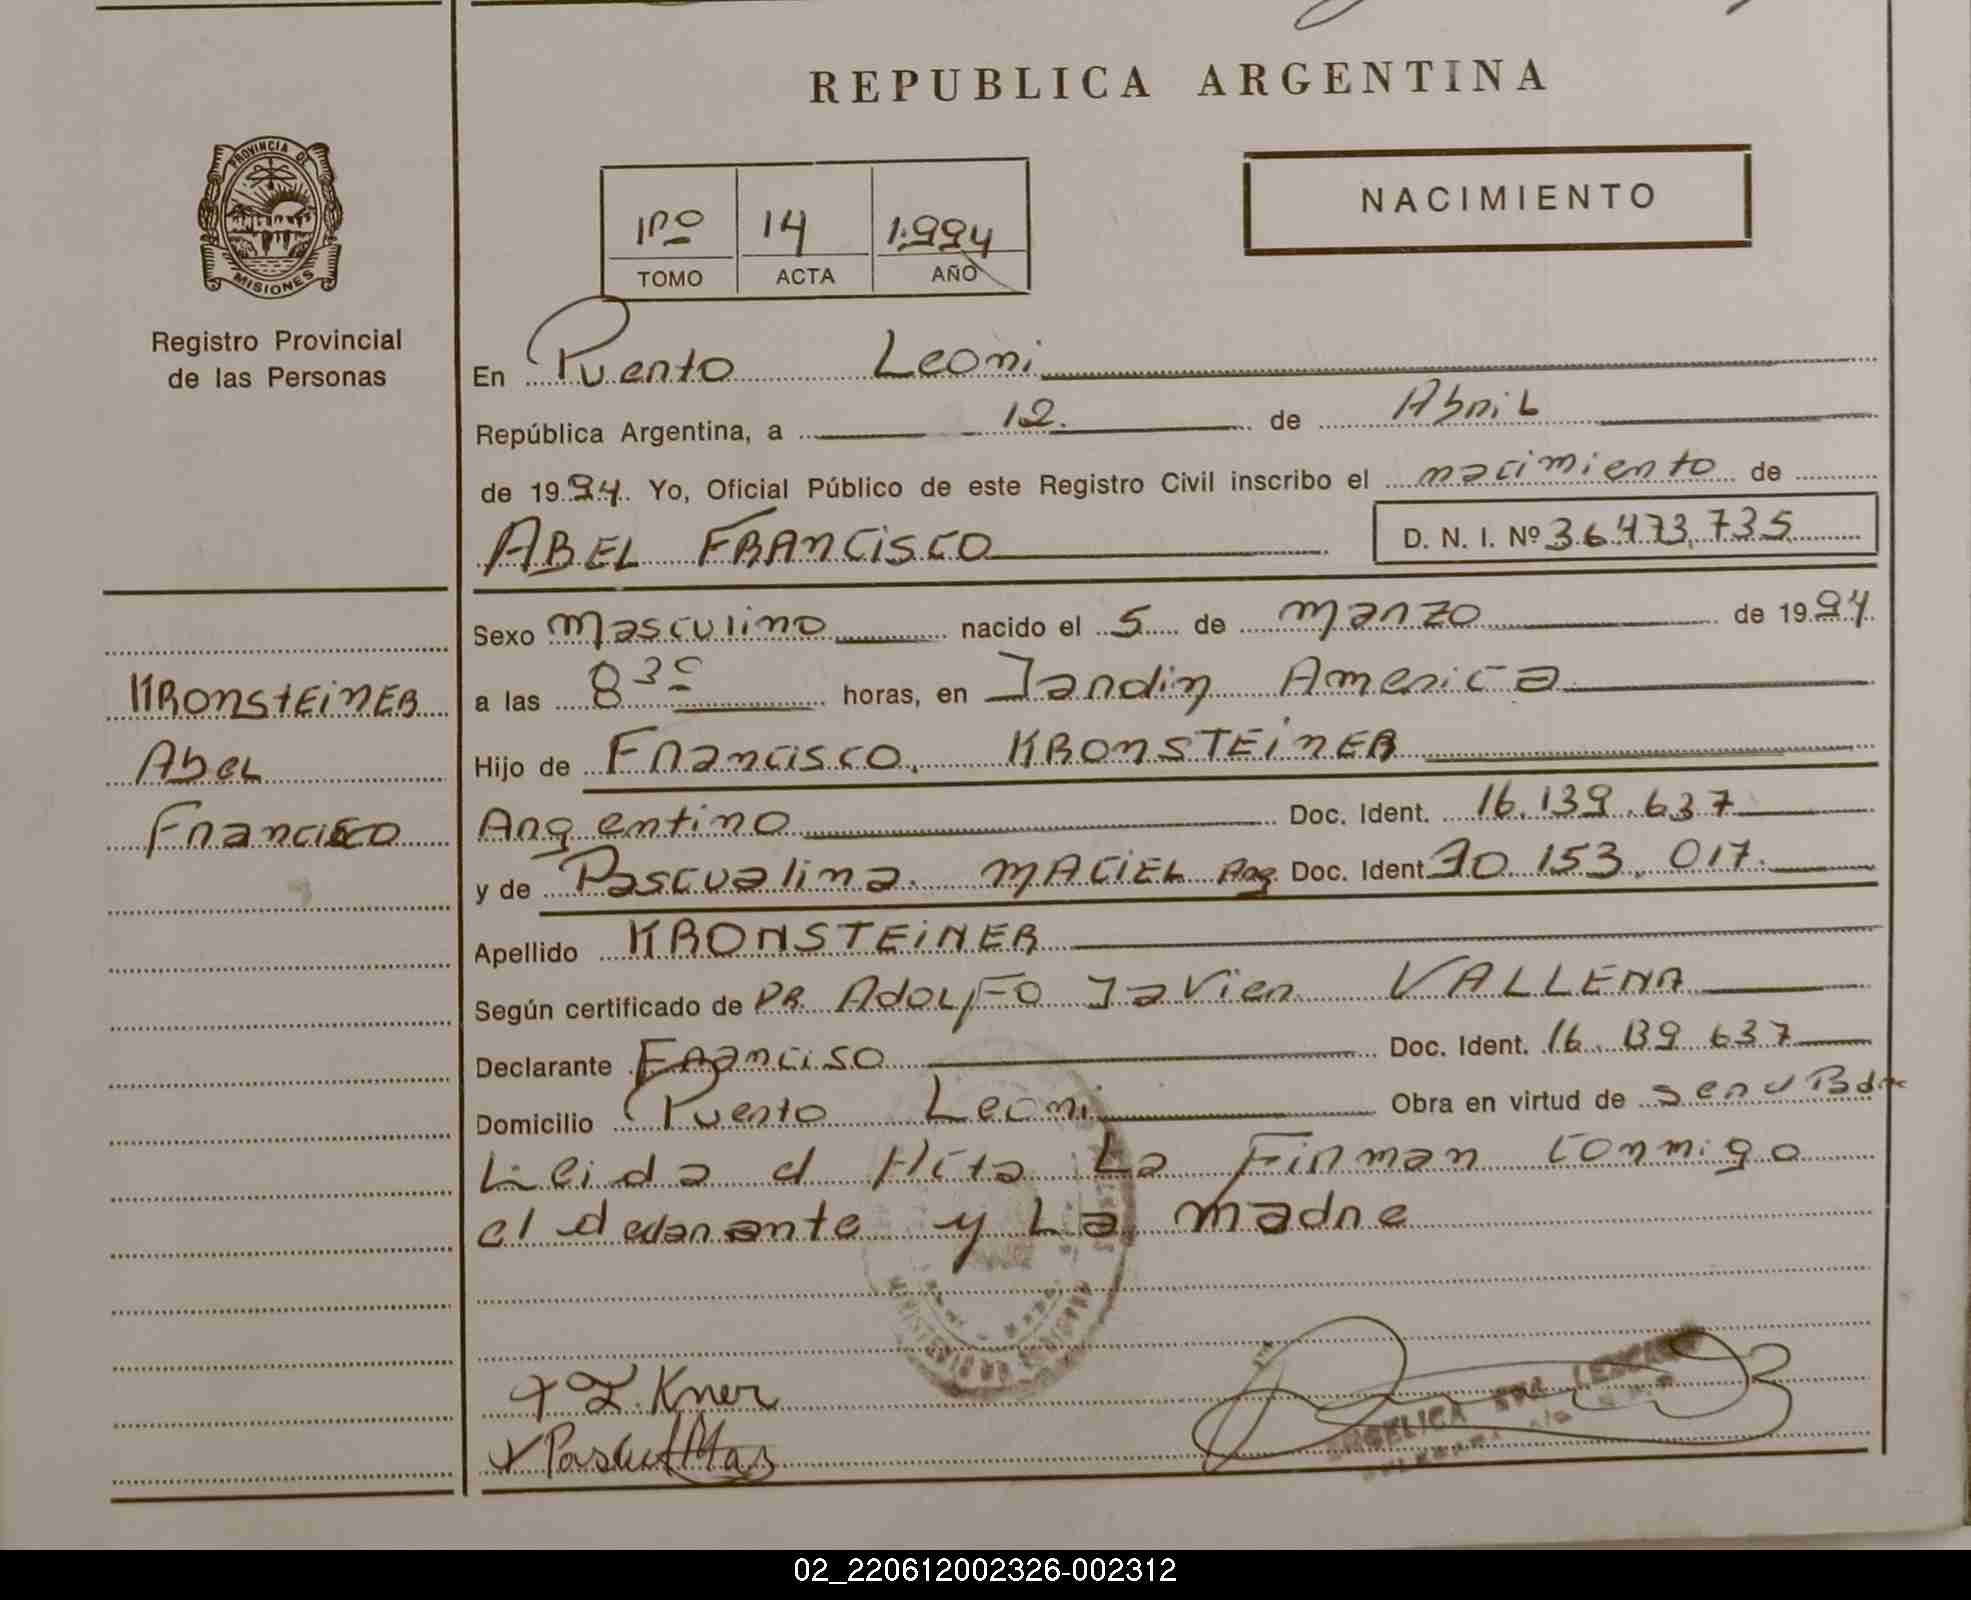 REPUBLICA ARGENTINA
PROVINCIA DE
MISIONES
Registro Provincial
de las Personas
1ro 14 1.994
TOMO ACTA AÑO
NACIMIENTO
En Puerto Leoni
República Argentina, a 12. de Abril
de 1994. Yo, Oficial Público de este Registro Civil inscribo el nacimiento de
ABEL FRANCISCO D. N. I. Nº 36.473.735
Sexo Masculino nacido el 5 de Marzo de 1994.
a las 8 30 horas, en Jardin America
Hijo de Francisco. KRONSTEiNER
Argentino Doc. Ident. 16.139.637
y de Pascualina. MACiEL Arg. Doc. Ident 30.153.017.
Apellido KRONSTEiNER
Según certificado de DR. AdOLFO Javier VALLERA
Declarante Franciso Doc. Ident. 16.139.637
Domicilio Puerto Leoni Obra en virtud de
Leida el Acta La Firman conmigo
el declarante y La Madre
KRONSTEiNER
Abel
Francisco
02_220612002326-002312